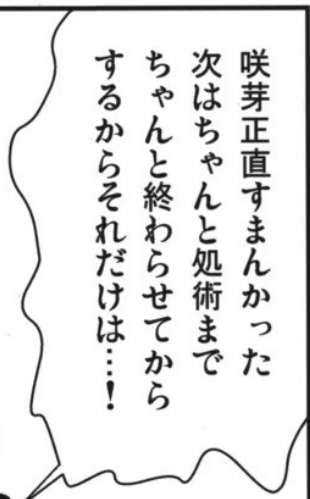 咲芽正直すまんかった
次はちゃんと処術まで
ちゃんと終わらせてから
するからそれだけは…！